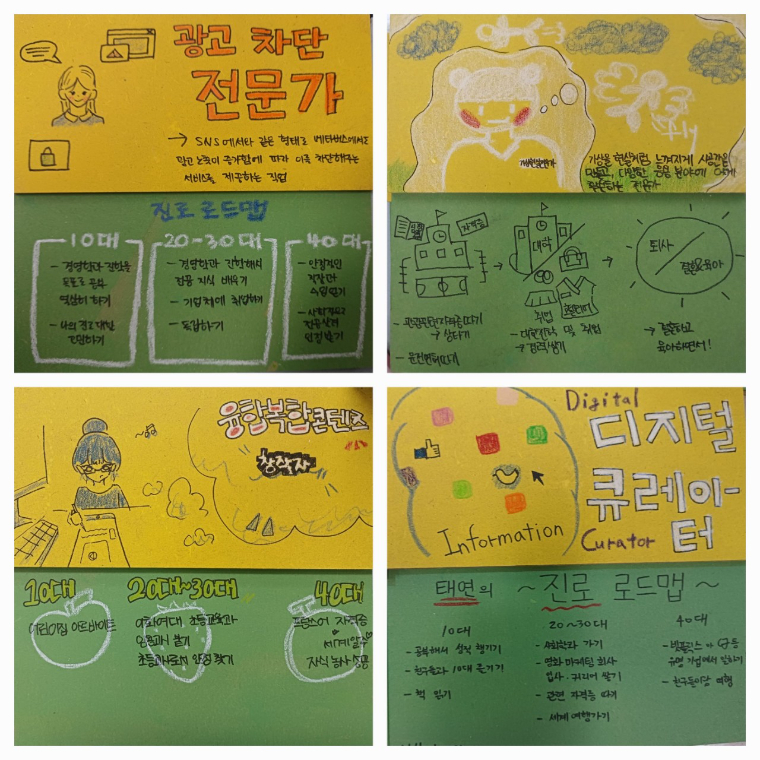 광고 차단
전문가
→ SNS에서와 같은 형태로 메타버스에서도
광고 노출이 증가함에 따라 이를 차단해주는
서비스를 제공하는 직업
진로 로드맵
10대
- 경영학과 진학을
목표로 공부
열심히 하기
- 나의 진로 대해
고민하기
20-30대
- 경영학과 진학해서
전공 지식 배우기
- 기업체에 취업하기
- 독립하기
40대
- 안정적인
직장과
수입 얻기
- 사회적으로
전문성을
인정받기
가상을 현실처럼 느껴지게 시공간을
만들고, 다양한 응용 분야에 맞게
전문가
자격증
대학
취업
퇴사
결혼&육아
→ 상타기
- 운전면허따기
- 대학진학 및 취업
→ 경력쌓기
→ 결혼하고
육아하면서!
융합복합콘텐츠
창작자
10대
어린이집 아르바이트
20대~30대
이화여대 초등교육과
임용고시 붙기
초등교사로서 안정 찾기
40대
프리랜서 자격증
세계일주
자식 농사 성공
Digital
디지털
큐레이-
터
Curator
Information
태연의 ~ 진로 로드맵 ~
10대
- 공부해서 성적 챙기기
- 친구들과 10대 즐기기!
- 책 읽기
20~30대
- 사회학과 가기
- 영화 마케팅 회사
입사·커리어 쌓기
- 관련 자격증 따기
- 세계 여행가기
40대
- 넷플릭스 야 구글 등
유명 기업에서 일하기
- 친구들이랑 여행